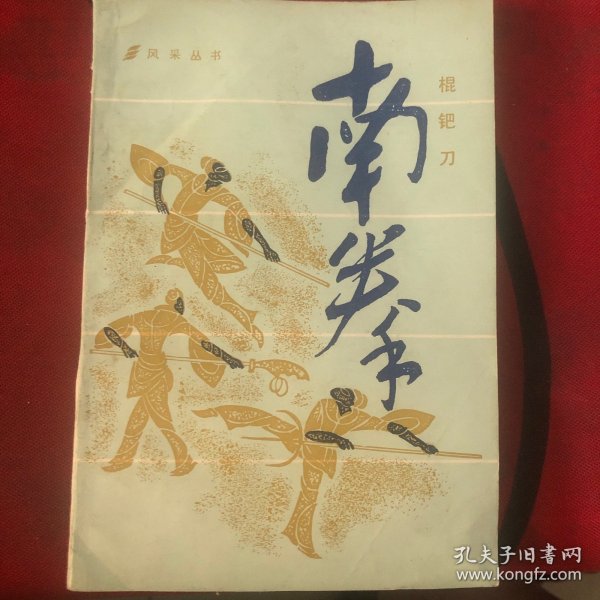 风采丛书
南拳
棍钯刀
孔夫子旧書网
www.kongfz.com